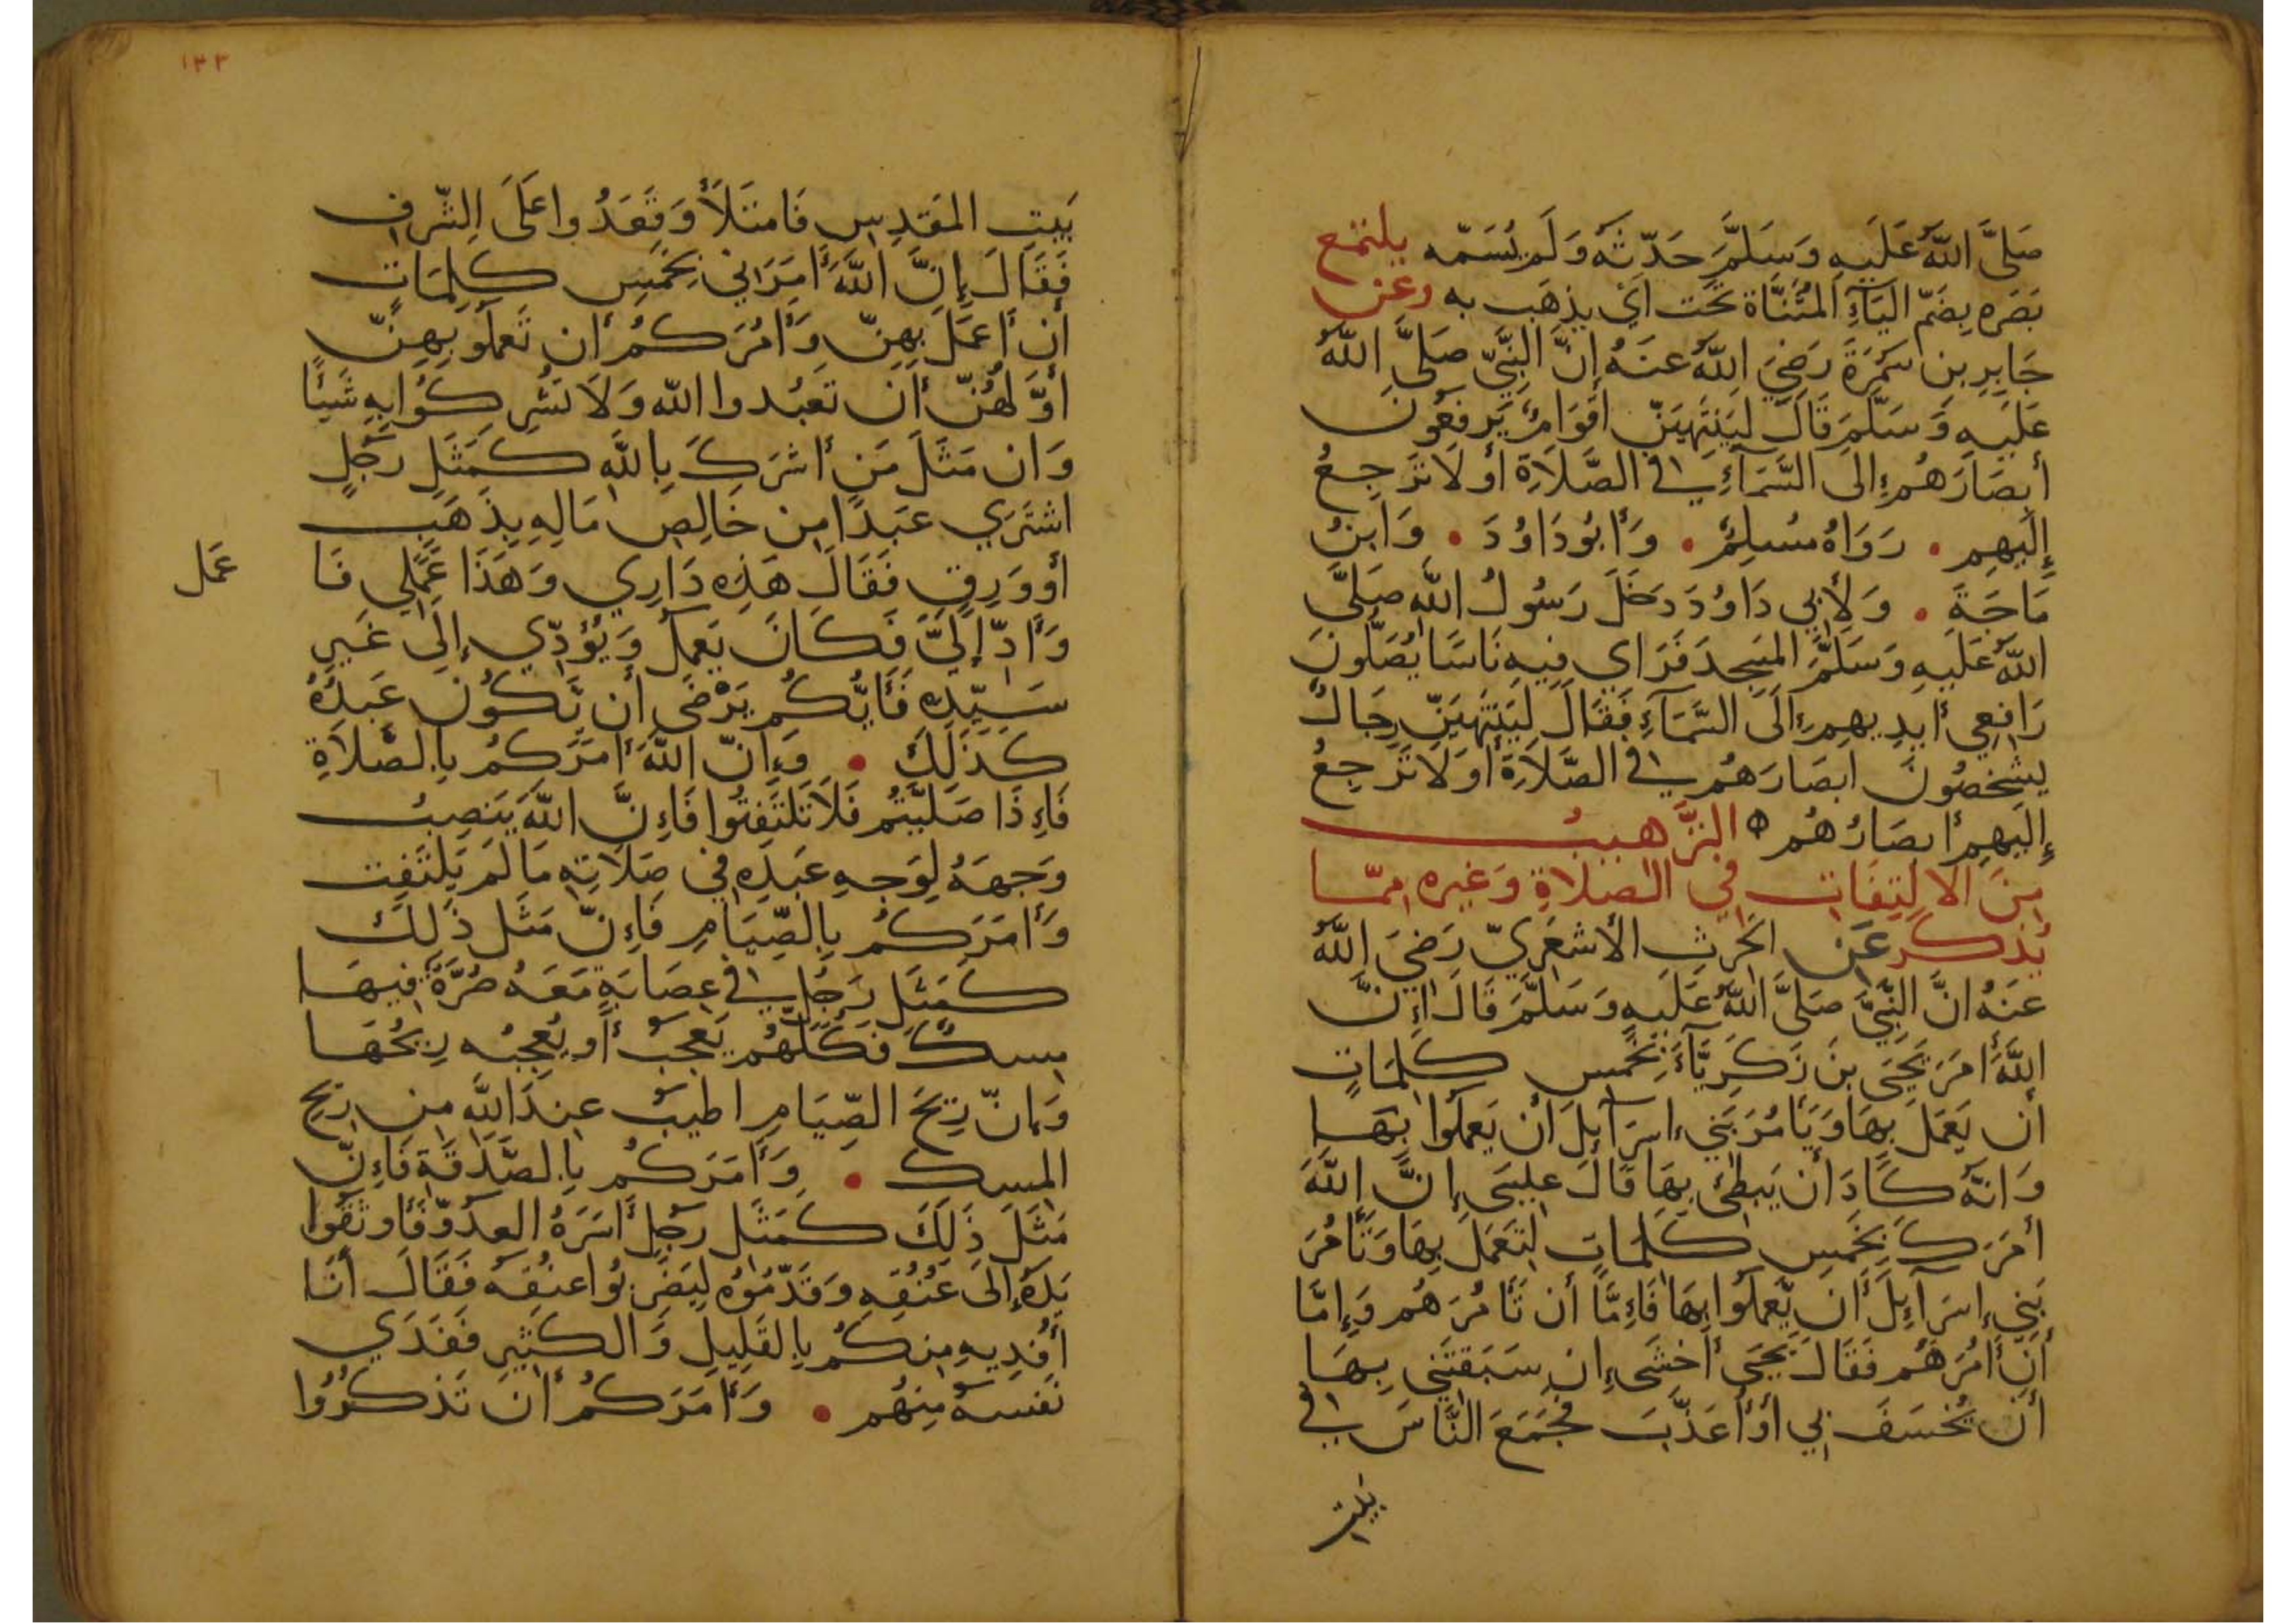 صَلَّى اللّٰهُ عَلَيهِ وَسَلَّمَ حَدّثَهُ وَلَم يُسَمّه يلتمع
بَصَره بِضَمّ اليَآءِ المُثَنَّاة تَحت اَيْ يذهَب به وعن
جَابِرِ بن سَمُرَةَ رَضِيَ اللّٰهُ عنهُ اِنَّ النَّبِيّ صَلَّى اللّٰهُ
عَلَيهِ وَسَلَّمَ قَالَ لَيَنتَهِيَنّ اَقوَامٌ يَرفَعُونَ
أبصَارَهُم إلى السَّمَآءِ في الصَّلَاةِ أو لَا تَرجِعُ
إلَيهِم . رَوَاهُ مُسلِمٌ . وَأبُو دَاوُدَ . وَابنُ
مَاجَةَ . وَلِأبي دَاوُدَ دَخَلَ رَسُولُ اللّٰهِ صَلَّى
اللّٰهُ عَلَيهِ وَسَلَّمَ المَسجِدَ فَرَاي فِيهِ نَاسًا يُصَلّونَ
رَافِعي أيدِيهِم إلَى السَّمَآءِ فَقَالَ لَيَنتَهِيَنّ رِجَالٌ
يشخصُونَ ابصَارَهُم في الصَّلَاةِ أو لَا تَرجِعُ
إلَيهِم أبصَارُهُم ۞ الترَّهيبُ
مِنَ الالتِفَات في الصَلاةِ وَغيره ممّا
يُذكر عَن الحَرث الأشعَرِيّ رَضِيَ اللّٰهُ
عَنهُ انَّ النَّبِيَّ صَلَّى اللّٰهُ عَلَيهِ وَسَلَّمَ قَالَ إنَّ
اللّٰهَ أمَرَ يَحيَى بنَ زَكَرِيَّآءَ بِخَمسِ كَلِمَاتٍ
أن يَعمَلَ بِهَا وَيَأمُرَ بَني إسرَآئِلَ أن يَعمَلُوا بِهَا
وَانّهُ كَادَ أن يَبطِئَ بِهَا قَالَ عِليسَى إنَّ اللّٰهَ
أمَرَكَ بخَمسِ كَلمَاتٍ لتَعمَلَ بِهَا وَتَأمُرَ
بَني إسرَآءِلَ أن يَّعمَلُوا بِهَا فَإمَّا أن تَأمُرَهُم وَإمَّا
أن أمُرَهُم فَقَالَ يَحيَى أخشَى إن سَبَقتَني بِهَا
أن يُخسَفَ بي أو أعَذّبَ فَجَمَعَ النَّاسَ في
بيت
١٣٣
بَيتِ المَقدِسِ فَامتَلَأَ وَقَعَدُوا عَلَى الشّرَف
فَقَالَ إنَّ اللّٰهَ أمَرَاني بِخَمسِ كَلِمَاتٍ
أن أعمَلَ بِهِنّ وَأمُرَكُم أن تَعمَلُو بِهِنّ
أوّلَهُنّ أن تَعبُدوا اللّٰه وَلَا تُشرِكُوا بِهِ شَيئًا
وَان مَثَلَ مَن أشرَكَ بِاللّٰهِ كَمَثَلِ رَجُلٍ
اشتَرَي عَبدًا مِن خَالِصِ مَالِهِ بِذَهَبٍ
أو وَرِقٍ فَقَالَ هَذِه دَارِي وَهَذَا عَمَلي فَا
عَمل
وَأدّ إلَيَّ فَكَانَ يَعمَلُ وَيُؤَدّي إلَى غَيرِ
سَيّدِهِ فَأيّكُم يَرْضَى أن يَكُونَ عَبدُهُ
كَذَلِكَ . وَإنّ اللّٰهَ أمَرَكُم بِالصَّلَاةِ
فَإذَا صَلَّيتُم فَلَا تَلتَفِتُوا فَإنَّ اللّٰهَ يَنصِبُ
وَجهَهُ لِوَجهِ عَبدِهِ في صَلَاتِهِ مَا لَم يَلتَفِت
وَأمَرَكُم بِالصِّيَامِ فَإنّ مَثَل ذَلِكَ
كَمَثَلِ رَجُلٍ في عِصَابَةٍ مَعَهُ صُرَّةٌ فِيهَا
مِسكٌ فَكلّهُم يَعجَبُ أو يُعجِبُه رِيحُهَا
وَانّ رِيحَ الصِّيَامِ اطيَبُ عِندَ اللّٰهِ مِن رِيحِ
المِسك . وَأمَرَكُم بِالصَّدَقَةِ فَإنّ
مَثَلَ ذَلِكَ كَمَثَلِ رَجُلٍ أسَرَهُ العدُوّ فَأوثَقُوا
يَدَهُ إلَى عُنُقِهِ وَقَدّمُوْهُ لِيَضرِبُوا عنُقَهُ فَقَالَ أنَا
أفدِيهِ مِنكُم بِالقَلِيلِ وَالكَثيرِ فَفَدَي
نَفسَهُ مِنهُم . وَأمَرَكُم أن تَذكُرُوا